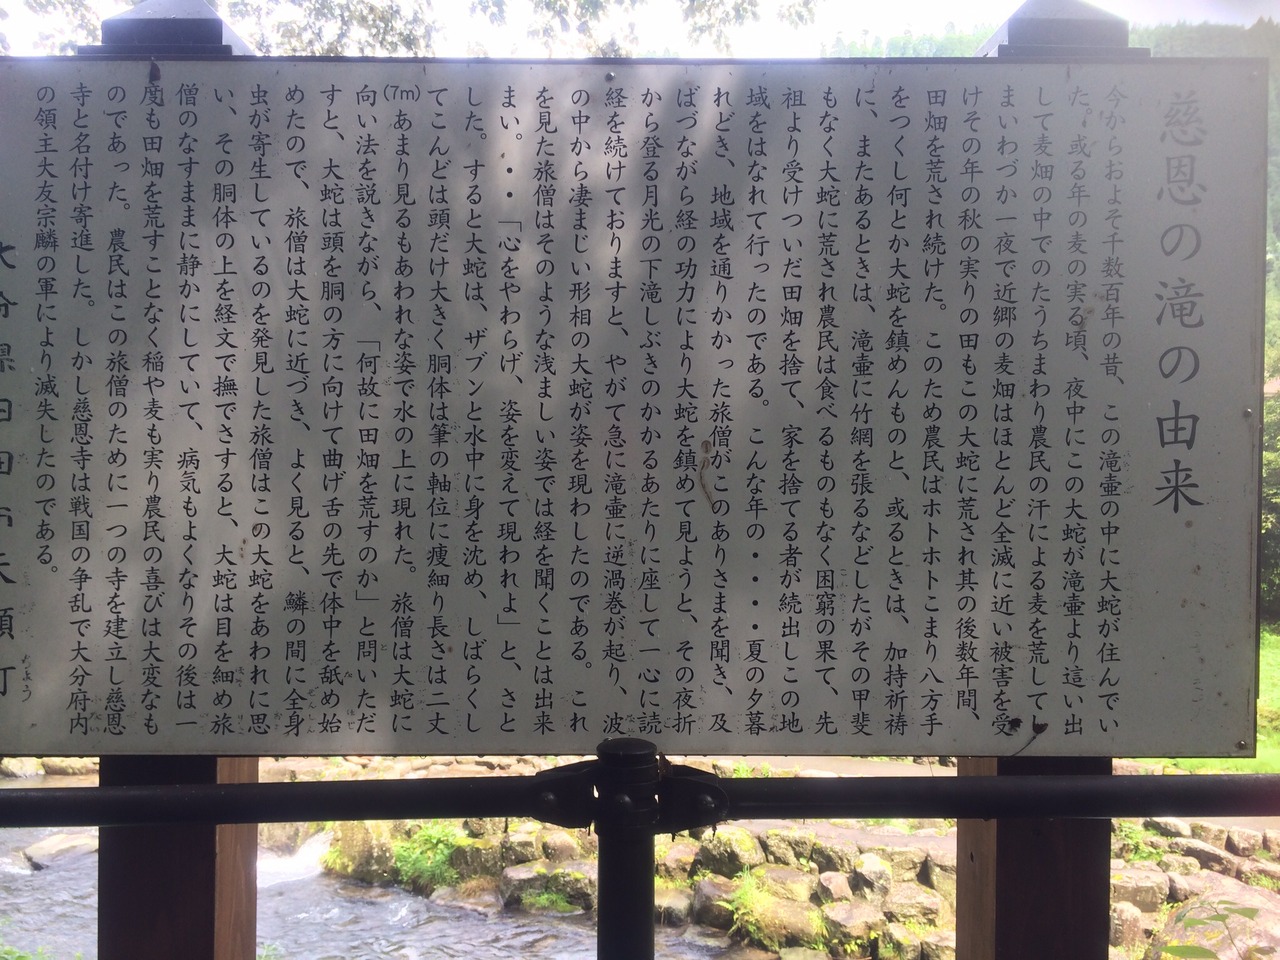 慈恩の滝の由来
今からおよそ千数百年の昔、この滝壺の中に大蛇が住んでい
た。或る年の麦の実る頃、夜中にこの大蛇が滝壺より這い出
して麦畑の中でのたうちまわり農民の汗による麦を荒してし
まいわづか一夜で近郷の麦畑はほとんど全滅に近い被害を受
けその年の秋の実りの田もこの大蛇に荒され其の後数年間、
田畑を荒され続けた。このため農民はホトホトこまり八方手
をつくし何とか大蛇を鎮めんものと、或るときは、加持祈祷
に、またあるときは、滝壺に竹網を張るなどしたがその甲斐
もなく大蛇に荒され農民は食べるものもなく困窮の果て、先
祖より受けついだ田畑を捨て、家を捨てる者が続出しこの地
域をはなれて行ったのである。こんな年の・・・・夏の夕暮
れどき、地域を通りかかった旅僧がこのありさまを聞き、及
ばづながら経の功力により大蛇を鎮めて見ようと、その夜折
から登る月光の下滝しぶきのかかるあたりに座して一心に読
経を続けておりますと、やがて急に滝壺に逆渦巻が起り、波
の中から凄まじい形相の大蛇が姿を現わしたのである。これ
を見た旅僧はそのような浅ましい姿では経を聞くことは出来
まい。・・「心をやわらげ、姿を変えて現われよ」と、さと
した。すると大蛇は、ザブンと水中に身を沈め、しばらくし
てこんどは頭だけ大きく胴体は筆の軸位に痩細り長さは二丈
(7m)あまり見るもあわれな姿で水の上に現れた。旅僧は大蛇に
向い法を説きながら、「何故に田畑を荒すのか」と問いただ
すと、大蛇は頭を胴の方に向けて曲げ舌の先で体中を舐め始
めたので、旅僧は大蛇に近づき、よく見ると、鱗の間に全身
虫が寄生しているのを発見した旅僧はこの大蛇をあわれに思
い、その胴体の上を経文で撫でさすると、大蛇は目を細め旅
僧のなすままに静かにしていて、病気もよくなりその後は一
度も田畑を荒すことなく稲や麦も実り農民の喜びは大変なも
のであった。農民はこの旅僧のために一つの寺を建立し慈恩
寺と名付け寄進した。しかし慈恩寺は戦国の争乱で大分府内
の領主大友宗麟の軍により滅失したのである。
大分県日田市天瀬町